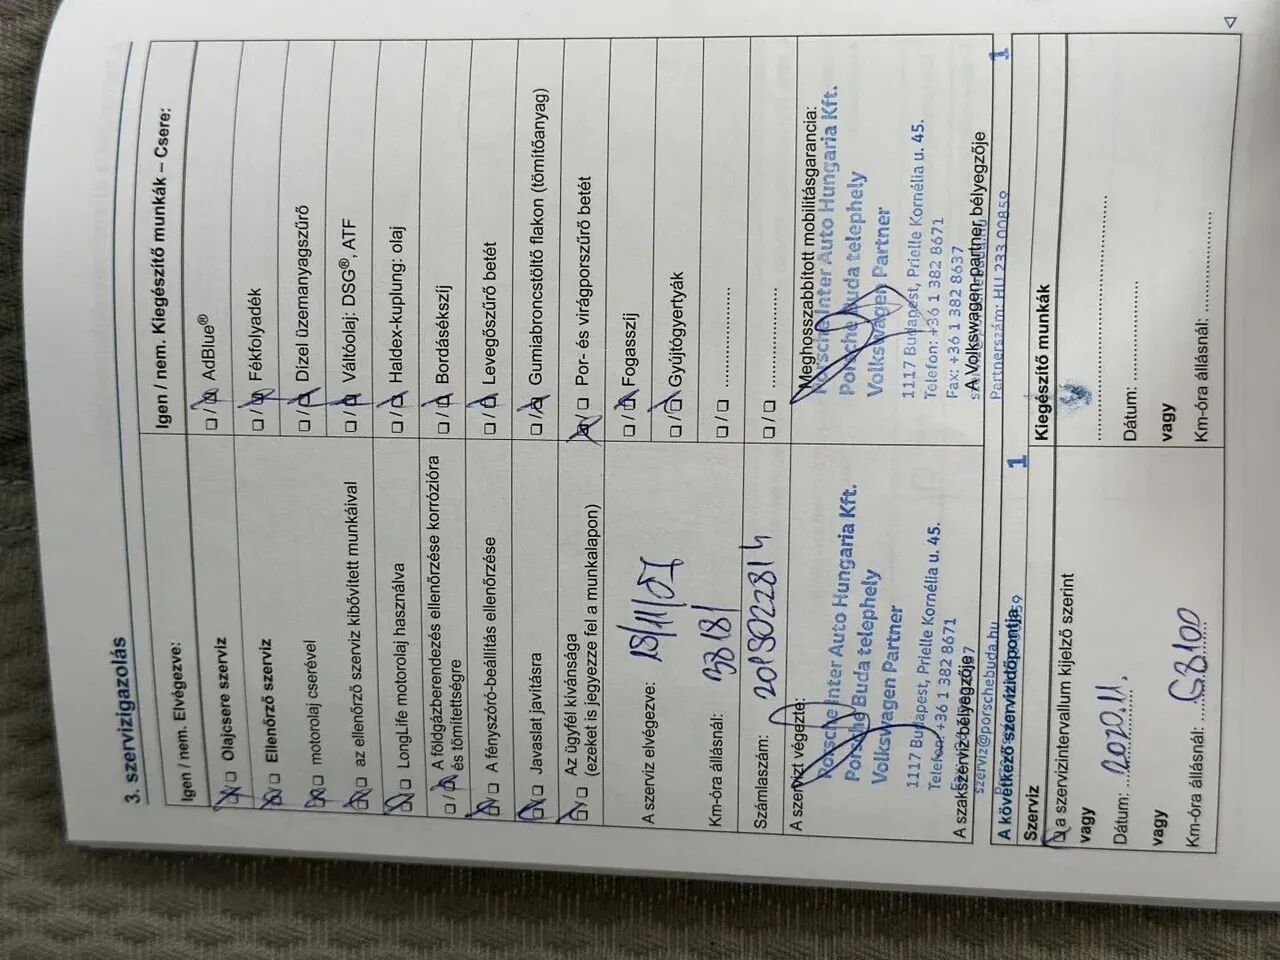 3. szervizigazolás
Igen / nem. Elvégezve:
Olajcsere szerviz
Ellenőrző szerviz
motorolaj cserével
az ellenőrző szerviz kibővített munkáival
LongLife motorolaj használva
A földgázberendezés ellenőrzése korrózióra
és tömítettségre
A fényszóró-beállítás ellenőrzése
Javaslat javításra
Az ügyfél kívánsága
(ezeket is jegyezze fel a munkalapon)
A szerviz elvégezve:
Km-óra állásnál:
Számlaszám:
A szervizt végezte:
Porsche Inter Auto Hungaria Kft.
Porsche Buda telephely
Volkswagen Partner
1117 Budapest, Prielle Kornélia u. 45.
Telefon: +36 1 382 8671
A szakszerviz bélyegzője
szerviz@porschebuda.hu
Igen / nem. Kiegészítő munkák – Csere:
AdBlue®
Fékfolyadék
Dízel üzemanyagszűrő
Váltóolaj: DSG®, ATF
Haldex-kuplung: olaj
Bordásékszíj
Levegőszűrő betét
Gumiabroncstöltő flakon (tömítőanyag)
Por- és virágporszűrő betét
Fogasszíj
Gyújtógyertyák
Meghosszabbított mobilitásgarancia:
Porsche Inter Auto Hungaria Kft.
Porsche Buda telephely
Volkswagen Partner
1117 Budapest, Prielle Kornélia u. 45.
Telefon: +36 1 382 8671
Fax: +36 1 382 8637
A Volkswagen-partner bélyegzője
Partnerszám: HU 233 00859
1
A következő szervizidőpontja
1
Szerviz
a szervizintervallum kijelző szerint
vagy
Dátum: 2020.11.
vagy
Km-óra állásnál:
Kiegészítő munkák
Dátum:
vagy
Km-óra állásnál: